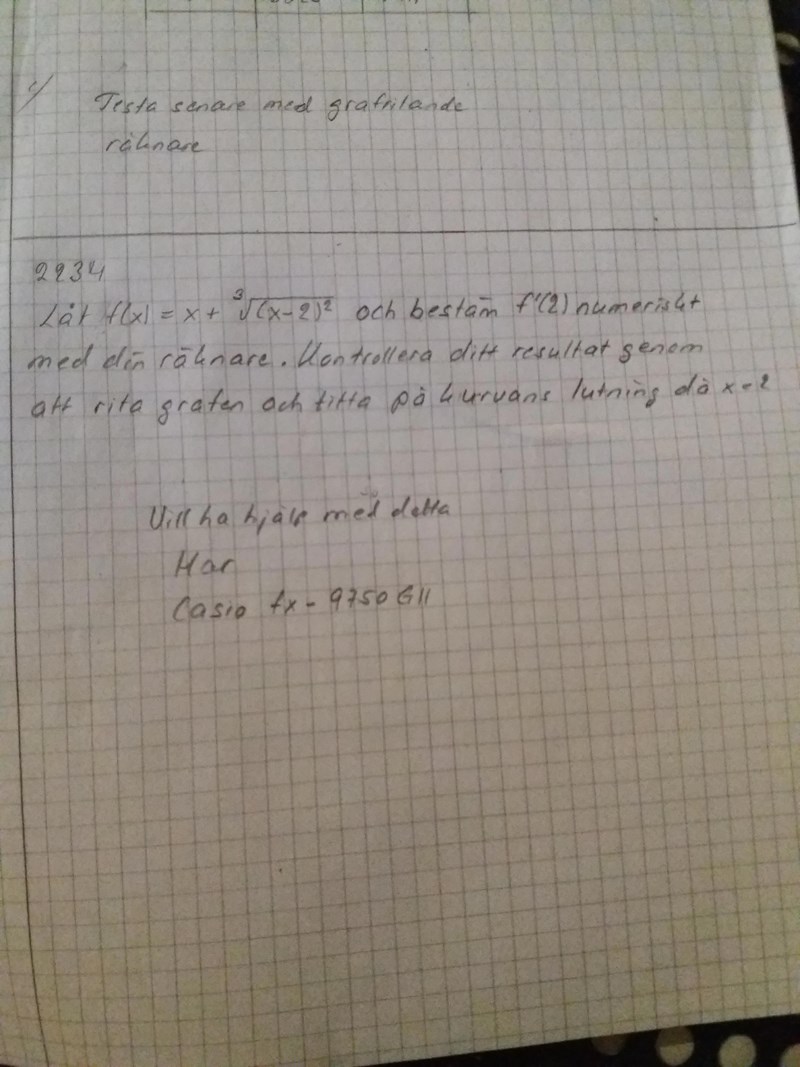 c/ Testa senare med grafritande
räknare
2234
Låt f(x) = x + ³√(x-2)² och bestäm f'(2) numeriskt
med din räknare. Kontrollera ditt resultat genom
att rita grafen och titta på kurvans lutning då x=2
Vill ha hjälp med detta
Har
Casio fx-9750GII